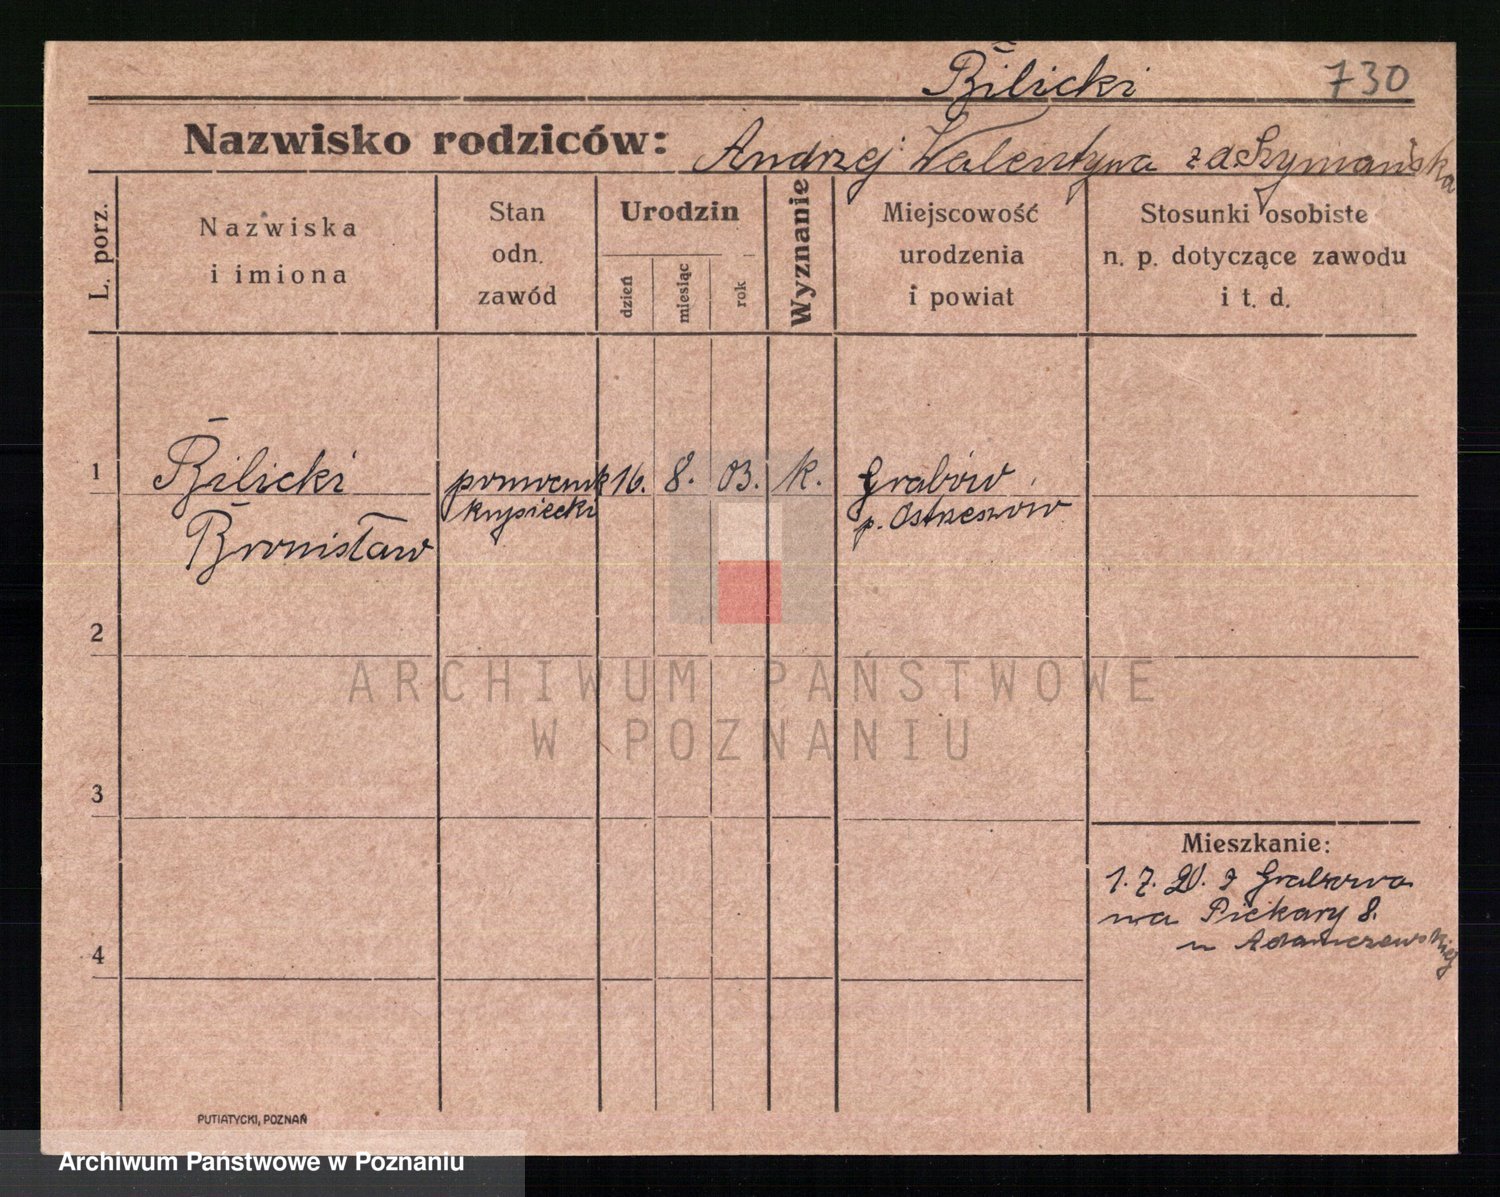 Bilicki 730
Nazwisko rodziców: Andrzej Walentyna z d. Szymańska
L. porz.
Nazwiska
i imiona
Stan
odn.
zawód
Urodzin
dzień
miesiąc
rok
Wyznanie
Miejscowość
urodzenia
i powiat
Stosunki osobiste
n. p. dotyczące zawodu
i t. d.
1 Bilicki pomocnik 16. 8. 03. k. Grabów
kupiecki p. Ostrzeszów
Bronisław
2
3
4
Mieszkanie:
1. 7. 20. z Grabowa
na Piekary 8.
u Adamczewskiej
PUTIATYCKI, POZNAŃ
ARCHIWUM PAŃSTWOWE
W POZNANIU
Archiwum Państwowe w Poznaniu